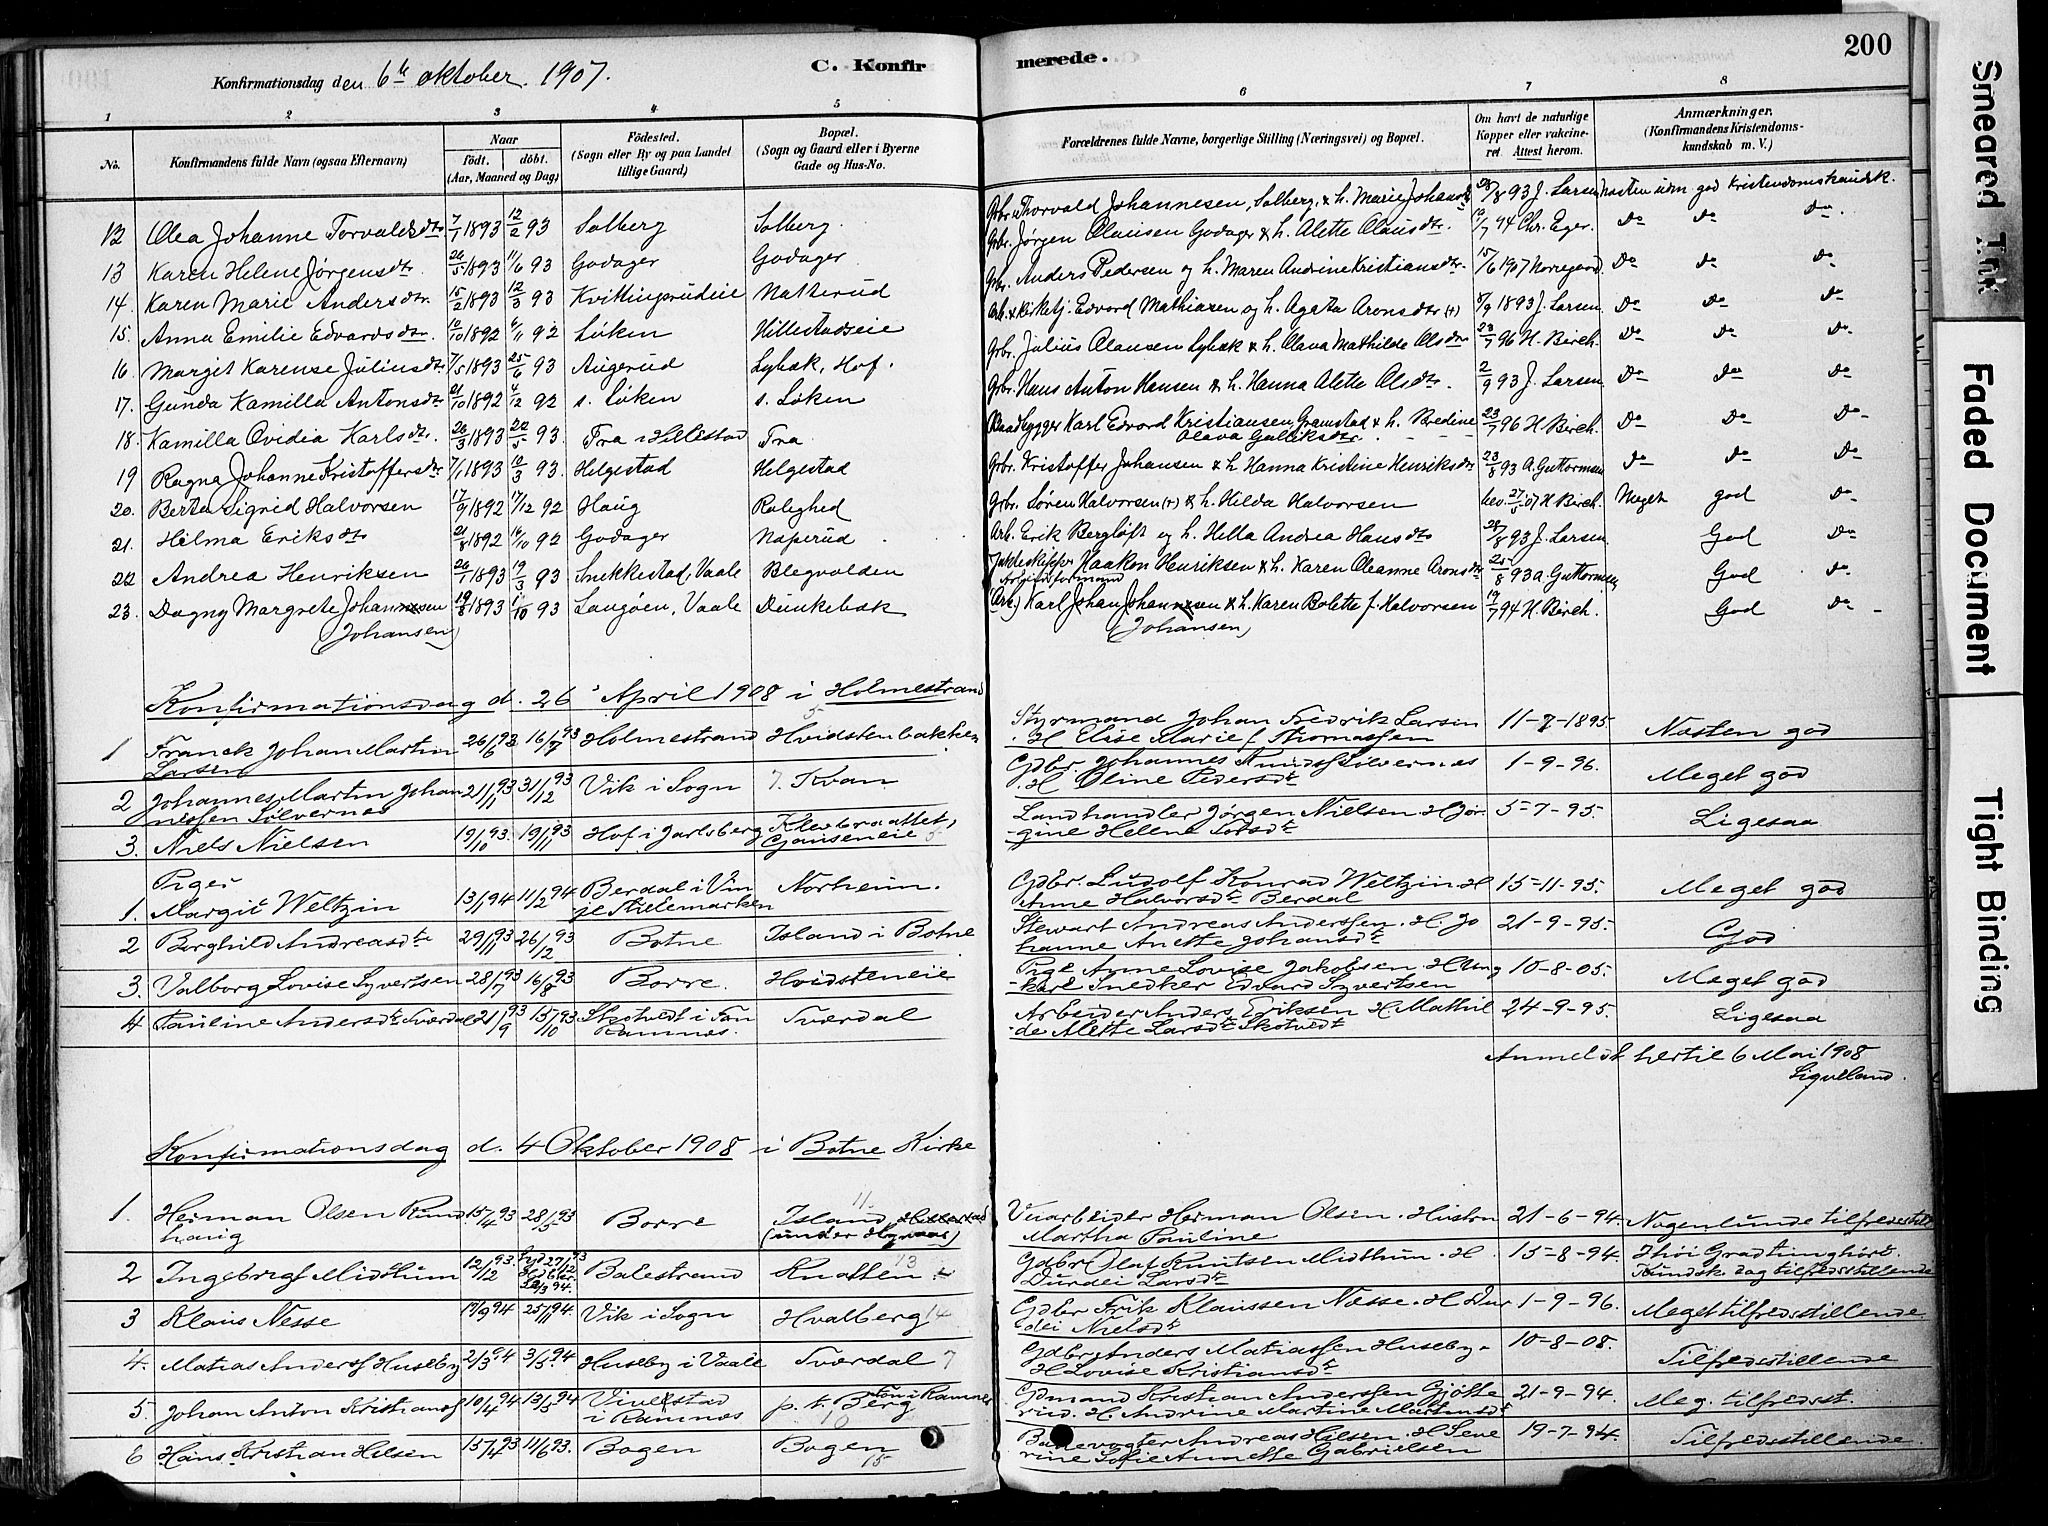 200
C. Konfirmerede.
Konfirmationsdag den 6te oktober. 1907.
1 2 3 4 5 6 7 8
No.
Konfirmandens fulde Navn (ogsaa Efternavn)
Naar
født. døbt.
(Aar, Maaned og Dag)
Fødested.
(Sogn eller By og paa Landet
tillige Gaard)
Bopæl.
(Sogn og Gaard eller i Byerne
Gade og Hus-No.
Forældrenes fulde Navne, borgerlige Stilling (Næringsvei) og Bopæl.
Om havt de naturlige
Kopper eller vakcine-
ret. Attest herom.
Anmærkninger.
(Konfirmandens Kristendoms-
kundskab m. V.)
12 Olea Johanne Torvaldsdtr. 7/1 1893 12/2 93 Solberg Solberg. Gbr. Thorvald Johannesen, Solberg, & h. Marie Johansd. 28/8 93 J. Larsen næsten udm. god Kristendomskundsk.
13 Karen Helene Jørgensdtr. 26/5 1893 11/6 93 Godager Godager Gbr. Jørgen Olausen Godager & h. Alette Olausdtr. 12/7 94 Chr. Eger. Do Do Do
14. Karen Marie Andersdtr. 15/2 1893 12/3 93 Kvittingsrudeie Natterud Gbr. Anders Pedersen og h. Maren Andrine Kristiansdtr. 15/6 1907 Norregaard Do Do Do
15. Anna Emilie Edvardsdtr. 10/10 1892 6/11 92 Løken Hillestadseie Arb. & kirketj. Edvard Mathiasen og h. Agata Aronsdtr (+) 8/9 1893 J. Larsen Do Do Do
16 Margit Karense Juliusdtr. 7/5 1893 25/6 93 Augerud Lybæk, Hof. Gbr. Julius Olausen Lybæk & h. Olava Mathilde Olsdtr. 23/7 96 H. Birch. Do Do Do
17. Gunda Kamilla Antonsdtr. 21/10 1892 4/12 92 s. Løken s. Løken Gbr. Hans Anton Hansen & h. Hanna Alette Olsdtr. 2/9 93 J. Larsen Do Do Do
18. Kamilla Ovidia Karlsdtr. 26/3 1893 22/5 93. Fra i Hillestad Fra Baadbygger Karl Edvard Kristiansen Gramstad & h. Bredine 23/7 96 H. Birch. Do Do Do
Olava Gulliksdtr.
19 Ragna Johanne Kristoffersdtr. 7/1 1893 12/3 93. Helgestad Helgestad Gbr. Kristoffer Johansen & h. Hanna Kristine Henriksdtr 23/8 93 A. Guttormsen Do Do Do
20. Berta Sigrid Halvorsen 17/9 1892 17/12 92 Haug Rolighed Gbr. Søren Halvorsen (+) & h. Hilda Halvorsen rev. 27/5 07 H. Birch. Meget god Do
21. Hilma Eriksdtr. 21/8 1892 16/10 92 Godager Naperud Arb. Erik Bergløft og h. Hella Andrea Hansdtr 28/8 93 J. Larsen. God Do
22 Andrea Henriksen 26/1 1893 19/3 93 Snekkestad, Vaale Blegvolden Jagteskipper Haakon Henriksen & h. Karen Oleanne Aronsdtr. 25/8 93 A. Guttormsen God Do
23. Dagny Margrete Johannesen 19/8 1893 1/10 93 Langøen, Vaale Dunkebæk (Arb.) Karl Johan Johannesen & h. Karen Bolette f. Halvorsen 19/7 94 H. Birch. God Do
(Johansen) (Johansen)
Konfirmationsdag d. 26 April 1908 i Holmestrand
1 Franck Johan Martin 26/6 93 16/7 93 Holmestrand Hvidstenbakken 5 Styrmand Johan Fredrik Larsen 11-7-1895 Næsten god
Larsen H Elise Marie f Thomassen
2 Johannes Martin Johan 21/11 93 31/12 93 Vik i Sogn 7. Kvan Gdbr. Johannes Knudsf Sølvernes 1-9-96. Meget god
nessen Sølvernes H Oline Pedersdt
3. Niels Nielsen 19/10 93. 19/11 93 Hof i Jarlsberg Klevbraattet, Landhandler Jørgen Nielsen H Jør- 5-7-95. Ligesaa
Gjauseneie gine Helene
Piger
1. Margit Weltzin 13/1 94 11/2 94 Berdal i Vin Norheim. Gdbr. Ludolf Konrad Weltzin H 15-11-95. Meget god
je Thelemarken Anne Halvorsdt Berdal
2 Borghild Andreasdt 29/1 93 26/2 93 Botne Island i Botne Stewart Andreas Anderssen. H. Jo 21-9-95. God
hanne Anette Johansdt
3. Valborg Lovise Syvertsen 28/7 93 16/8 93 Borre. Hvidsteneie Pige Anne Lovise Jakobsen H Ung 10-8-05. Meget god
karl Snedker Edvard Syvertsen
4 Pauline Andersdt Sværdal 21/9 93 15/10 93 Skotvedt i Fon Sværdal Arbeider Anders Eriksen H Mathil 24-9-95. Ligesaa
Ramnæs. de Alette Larsdt Skotvedt
Anmeldt hertil 6 Mai 1908
Sigveland.
Konfirmationsdag d. 4 Oktober 1908 i Botne Kirke
1. Herman Olsen Rund 15/4 93 28/5 93 Borre 11 Island Hillestad Veiarbeider Herman Olsen. Hustru 21-6-94. Nogenlunde tilfredsstill
haug (under Hagnaas) Martha Pauline
2 Ingebrigt Midthun 12/12 93. Balestrand Knatten 13 Gdbr Olaf Knutsen Midthun. H. 15-8-94. I høi Grad tunghørt.
Durdei Larsdt Kundsk. dog tilfredsstillende
3 Klaus Nesse 17/9 94 25/11 94. Vik i Sogn Hvalberg 14 Gdbr Erik Klaussen Næsse. H Dur 1-9-96. Meget tilfredsstillende.
dei Nielsdt
4. Matias Andersf Huseby 2/3 94 3/5 94 Huseby i Vaale Sværdal 7 Gdbr Anders Matiassen Huseby. 10-8-08. Tilfredsstillende
H Lovise Kristiansdt
5. Johan Anton Kristiansf 10/4 94 13/5 94 Vivestad p. t. Berg 10 Gdmand Kristian Anderssen Gjøtte 21-9-94. Meg. tilfredsst.
i Ramnæs rud. H. Andrine Martine Martinsdt
6 Hans Kristian Hilsen 15/4 93 11/6 93. Bogen Bogen 15 Banevogter Andreas Hilsen. H Seve 19-7-94. Tilfredsstillende.
rine Sofie Annette Gabrielsen
Smeared Ink
Faded Document
Tight Binding